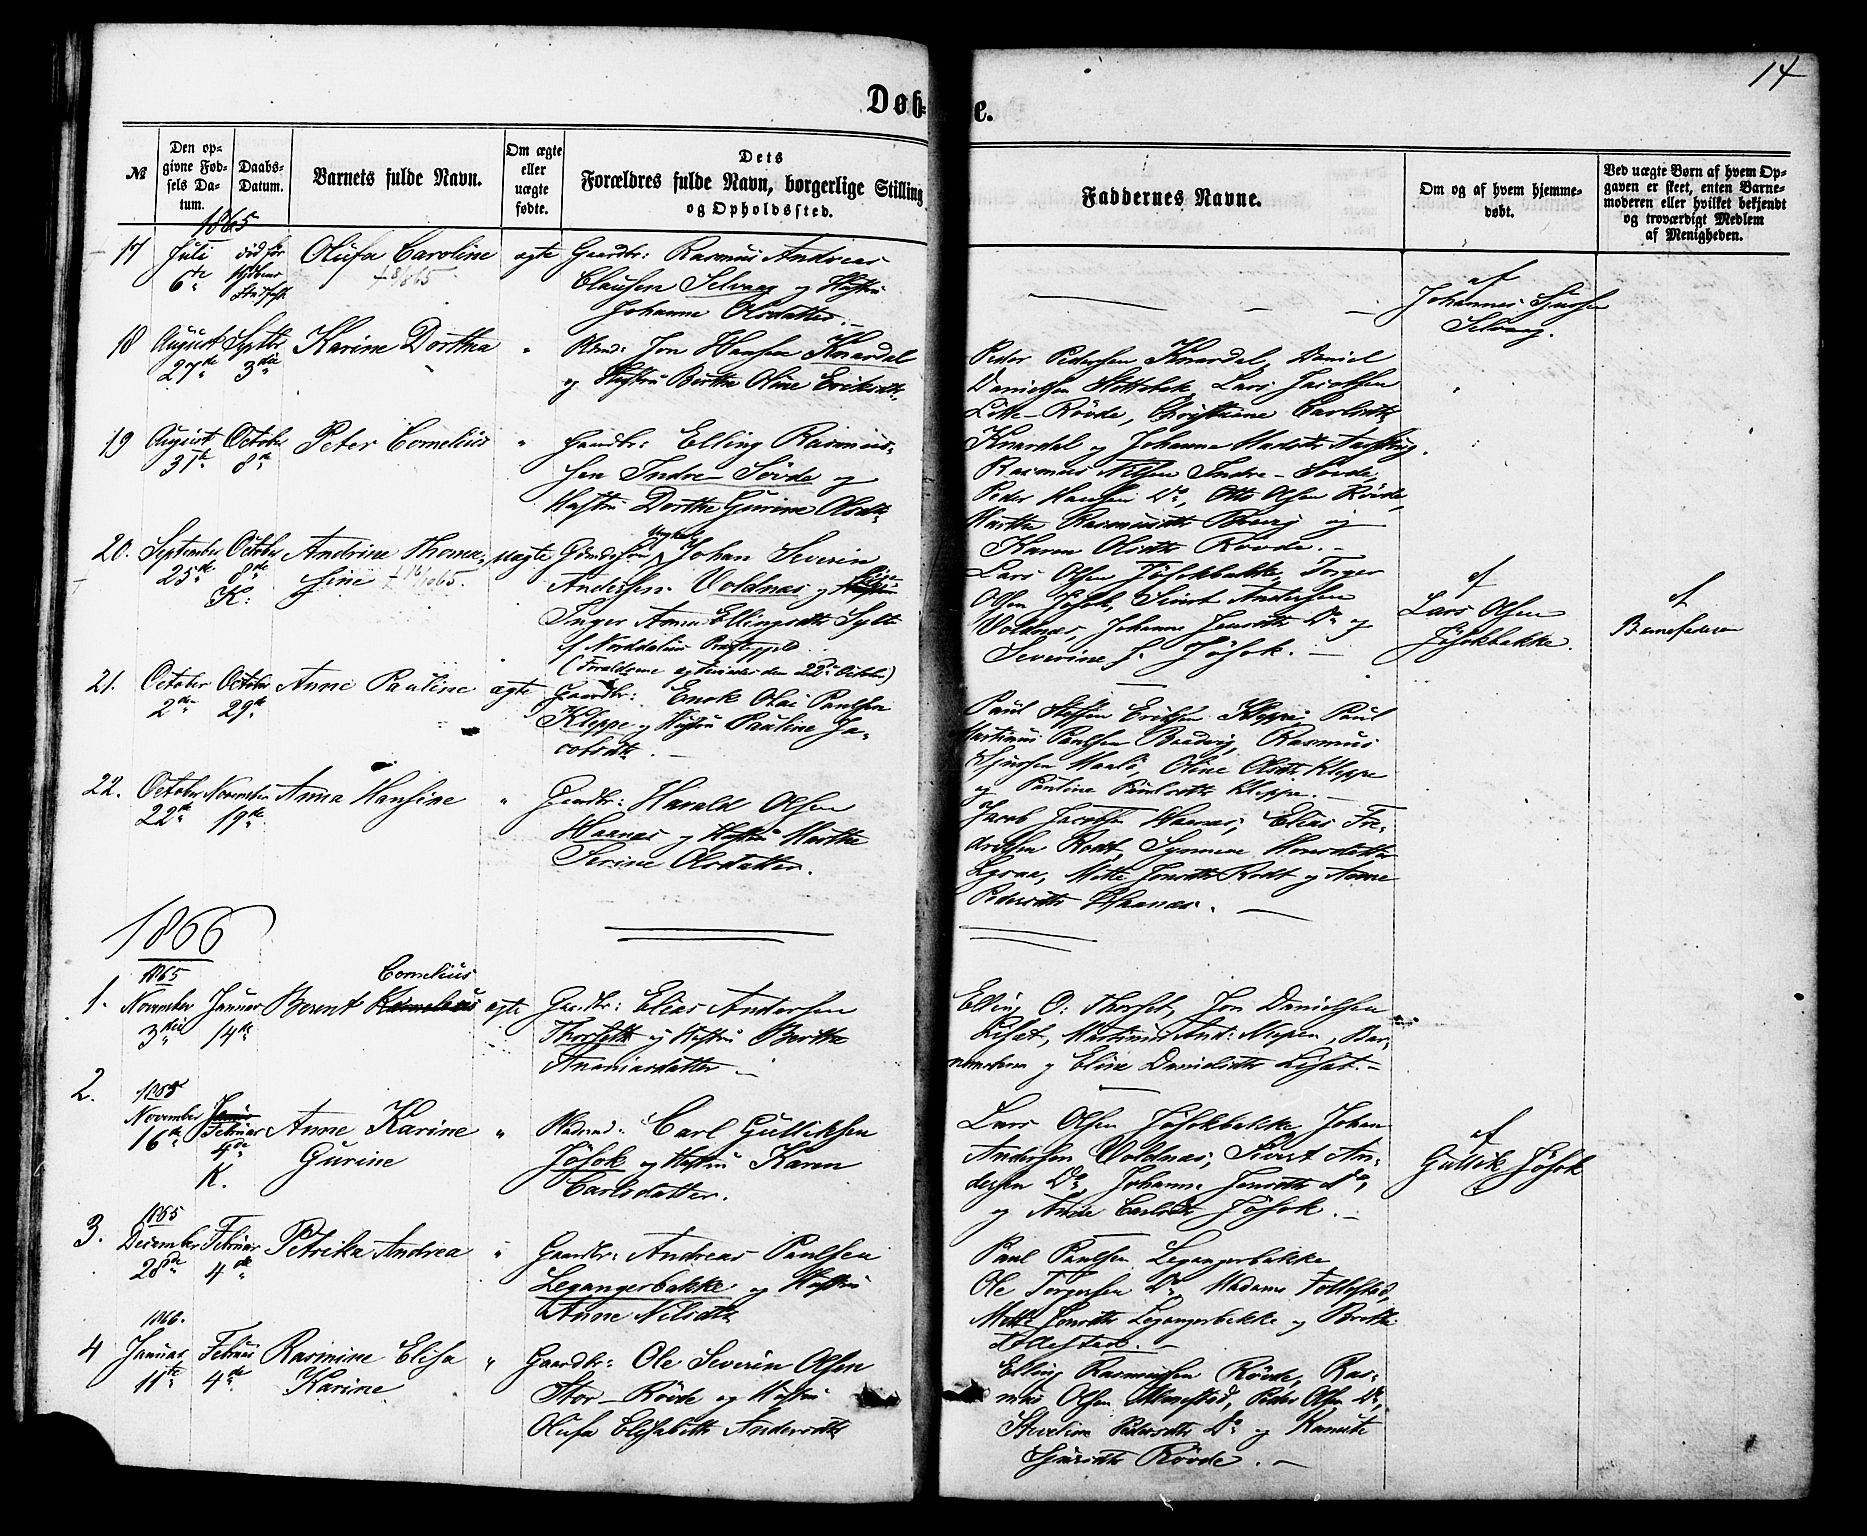 14
Døbte.
№
Den opgivne Fødsels Datum.
Daabs-Datum.
Barnets fulde Navn.
Om ægte eller uægte fødte.
Dets Forældres fulde Navn, borgerlige Stilling og Opholdssted.
Faddernes Navne.
Om og af hvem hjemmedøbt.
Ved uægte Børn af hvem Opgaven er skeet, enten Barnemoderen eller hvilket bekjendt og troværdigt Medlem af Menigheden.
1865
17 Juli 6te død før Olufa Caroline ægte Gaardbr: Rasmus Andreas
Clausen Selvaag og Hustru
Johanne Olsdatter.
af
Johannes
Selvaag.
18 August 27de Septbr 3die Karine Dorthea " Jon Hansen Knardal
og Hustru Berthe Oline Eriksdtr.
Peder Pedersen Knardal, Daniel
Danielsen, Lars Jacobsen
Litle-Rövde, Christiane Carlsdtr
Knardal og Johanne
19 August 31te October 8de Peter Cornelius " Gaardbr: Elling Rasmus-
sen Indre-Sövde og
Hustru Dorthe Gurine Olsdtr
Rasmus Nilsen Indre-Sövde,
Peder Hansen Do, Otto Olsen Rövde,
Marthe Rasmusdtr og
Karen Olsdtr Rövde.-
20. September 25de October 8de K: Andrine Thoma-
sine uægte Johan Severin
Andersen Voldnæs og
Inger Anna Ellingsdtr Sylte
af Norddalens Præstegjeld
(Forældrene den 22de October)
Lars Olsen Jøsokbakke, Torger
Olsen Jøsok, Sivert Andersen
Voldnæs, Johanne Jensdtr Do og
Severine J. Jøsok.-
af
Lars Olsen
Jøsokbakke.
af
Barnefaderen
21. October 2den October 29de Anne Pauline ægte Gaardbr: Enok Olai Paulsen
Kleppe og Hustru Pauline Ja-
cobsdtr.-
Paul Steffen Eriksen Kleppe, Paul
Martinus Paulsen, Rasmus
Sjursen, Oline Olsdtr. Kleppe
og Pauline Paulsdtr Kleppe.-
22. October 22de November 19de Anna Hansine " Gaardbr: Harald Olsen
Haanæs og Hustru Marthe
Serine Olsdatter.
Jacob Jacobsen Haanæs, Elias Fre-
driksen Rødt, Synneve
Mette Jonsdtr Rødt og Anne
Pedersdtr Haanæs.-
1866
1. 1865 November 3die Januar 14de Berent Cornelius ægte Gaardbr: Elias Andersen
Thorset og Hustru Berthe
Ananiasdatter.-
Elling O: Thorset, Jon Danielsen
Lisæt, Martinus And: Nepen, Bar-
nemoderen og Eline Danielsdtr Lisæt.-
2. 1865 November 16de Februar 4de K. Anne Karine
Gurine " Carl Gulliksen
Jøsok og Hustru Karen
Carlsdatter.
Lars Olsen Jøsokbakke, Johan
Andersen Voldnæs, Sivert An-
dersen Do, Johanne Jensdtr Do,
og Anne Carlsdtr Jøsok.-
af
Gullik Jøsok
3. 1865 December 28de Februar 4de Petrika Andrea " Gaardbr: Andreas Paulsen
Legangerbakke og Hustru
Anne Nilsdtr
Paul Paulsen Legangerbakke
Ole Torgersen Do, Madame Follestad,
Mette Jonsdtr Legangerbakke og
Follestad.-
4 1866. Januar 11te Februar 4de Rasmine Elisa
Karine " Gaardbr: Ole Severin Olsen
Stor-Rövde og Hustru
Olufa Elisabeth Andersdtr
Elling Rasmussen Rövde, Ras-
mus Olsen, Peder Olsen Do,
Severine Pedersdtr Do og
Sjursdtr Rövde.-